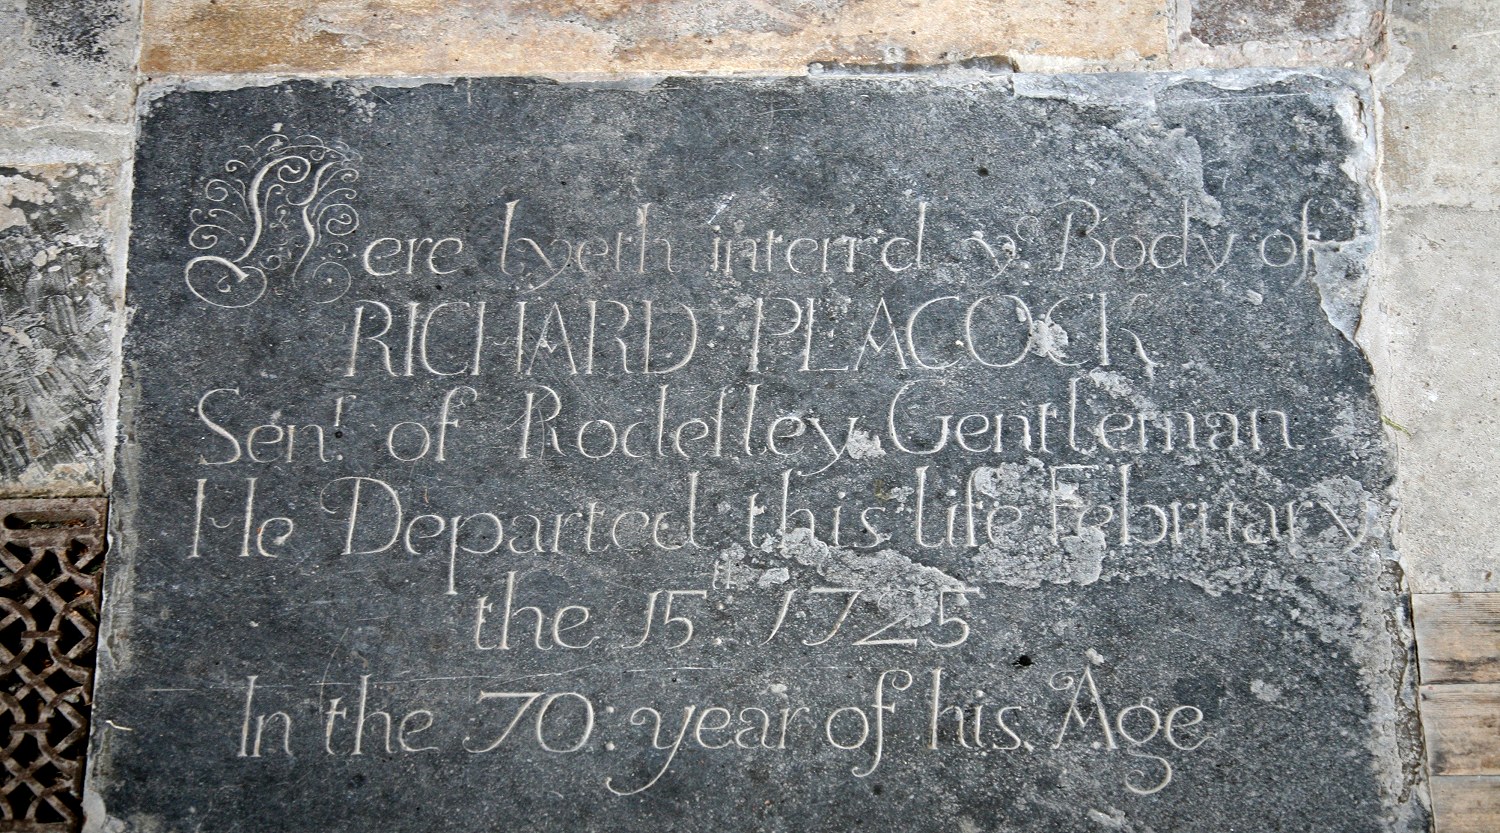 Here lyeth interr'd yͤ Body of
RICHARD PEACOCK
Senʳ of Rodesley Gentleman
He Departed this life February
the 15ᵗʰ 1725
In the 70: year of his Age